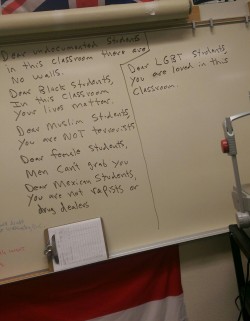 Dear undocumented Students,
in this classroom there are
No walls.
Dear Black Students,
In this classroom
Your lives matter.
Dear Muslim Students,
You are NOT terrorists
Dear female Students,
Men Can't grab you
Dear Mexican Students,
You are not rapists or
drug dealers
Dear LGBT Students,
you are loved in this
Classroom